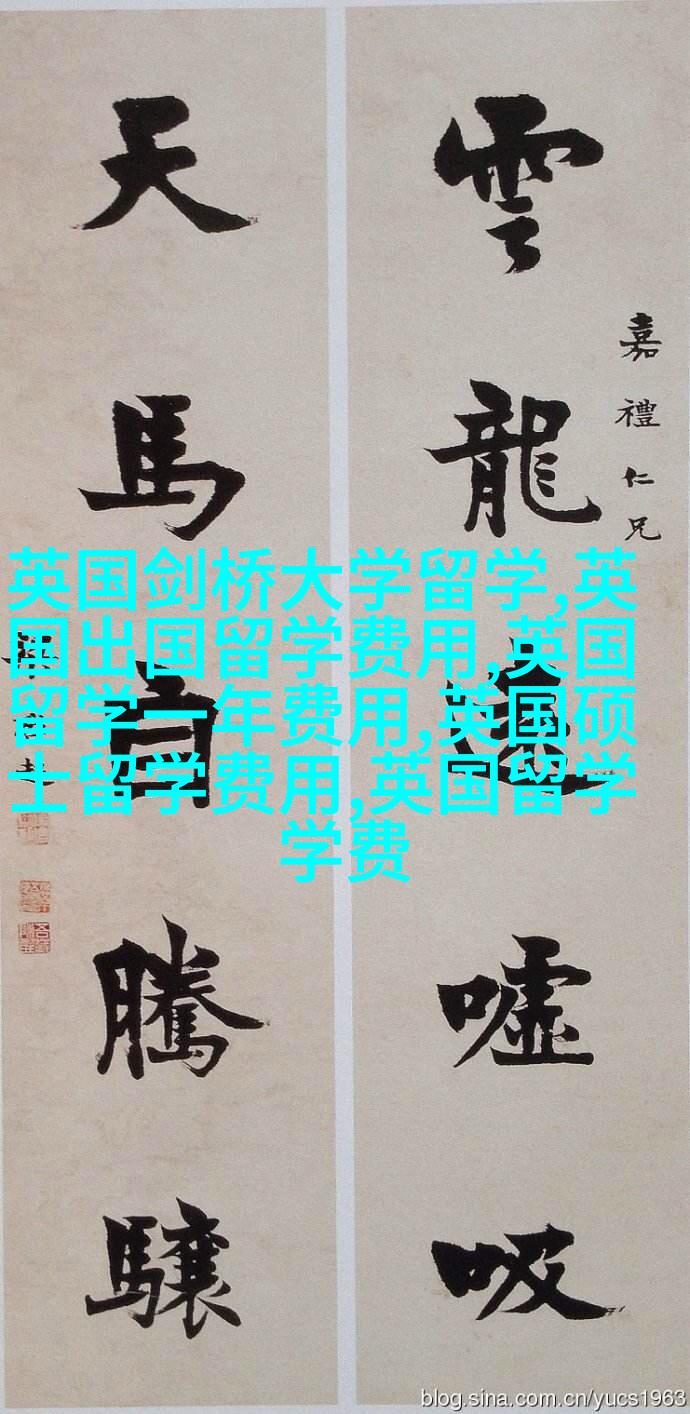 嘉禮仁兄
雲龍噓吸
天馬自騰驤
英国剑桥大学留学,英
国出国留学费用,英国
留学一年费用,英国硕
士留学费用,英国留学
学费
blog.sina.com.cn/yucs1963